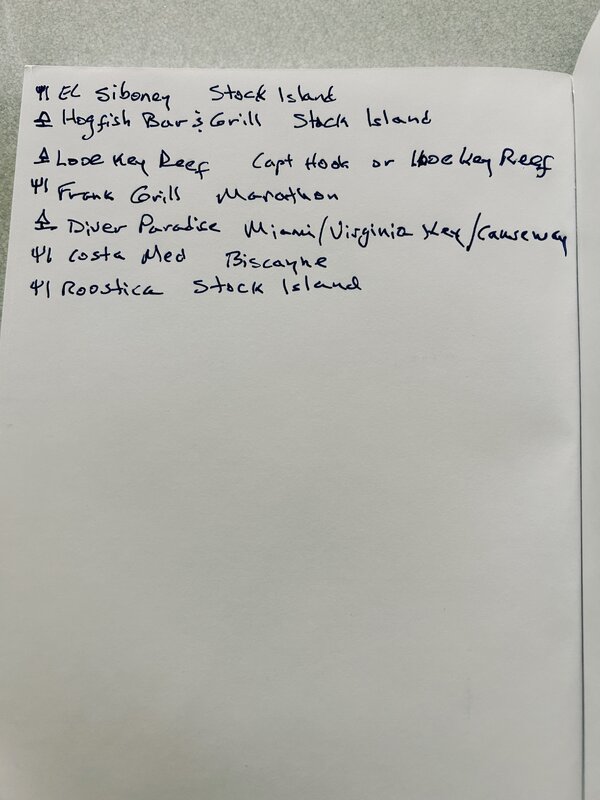 El Siboney Stock Island
Hogfish Bar & Grill Stock Island
Looe Key Reef Capt Hook or Looe Key Reef
Frank Grill Marathon
Diver Paradise Miami/Virginia Key/Causeway
Costa Med Biscayne
Roostica Stock Island